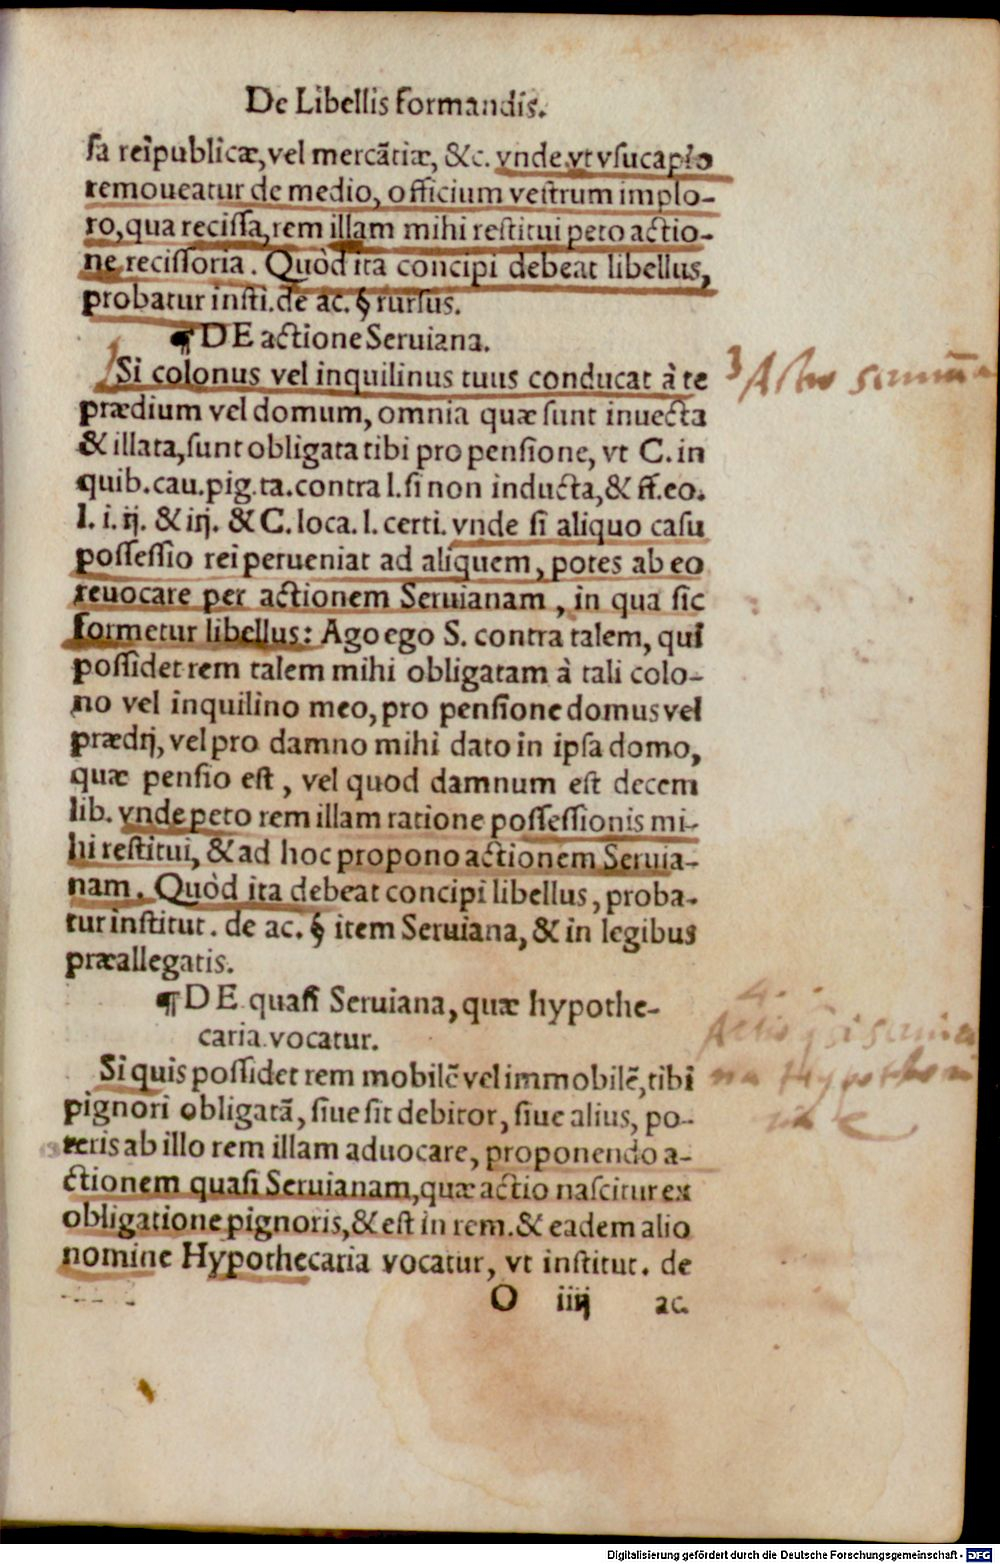 De Libellis formandis.
sa reipublicæ, vel mercãtiæ, &c. vnde vt vsucapio
remoueatur de medio, officium vestrum implo-
ro, qua recissa, rem illam mihi restitui peto actio-
ne recissoria. Quòd ita concipi debeat libellus,
probatur insti. de ac. § rursus.
¶ DE actione Seruiana.
Si colonus vel inquilinus tuus conducat à te
prædium vel domum, omnia quæ sunt inuecta
& illata, sunt obligata tibi pro pensione, vt C. in
quib. cau. pig. ta. contra l. si non inducta, & ff. eo.
l. i. ij. & iij. & C. loca. l. certi. vnde si aliquo casu
possessio rei perueniat ad aliquem, potes ab eo
reuocare per actionem Seruianam, in qua sic
formetur libellus: Ago ego S. contra talem, qui
possidet rem talem mihi obligatam à tali colo-
no vel inquilino meo, pro pensione domus vel
prædij, vel pro damno mihi dato in ipsa domo,
quæ pensio est, vel quod damnum est decem
lib. vnde peto rem illam ratione possessionis mi-
hi restitui, & ad hoc propono actionem Seruia-
nam. Quòd ita debeat concipi libellus, proba-
tur institut. de ac. § item Seruiana, & in legibus
præallegatis.
¶ DE quasi Seruiana, quæ hypothe-
caria vocatur.
Si quis possidet rem mobilẽ vel immobilẽ, tibi
pignori obligatã, siue sit debitor, siue alius, po-
teris ab illo rem illam aduocare, proponendo a-
ctionem quasi Seruianam, quæ actio nascitur ex
obligatione pignoris, & est in rem. & eadem alio
nomine Hypothecaria vocatur, vt institut. de
O iiij ac.
3 Actio
4.
Actio
Digitalisierung gefördert durch die Deutsche Forschungsgemeinschaft - DFG